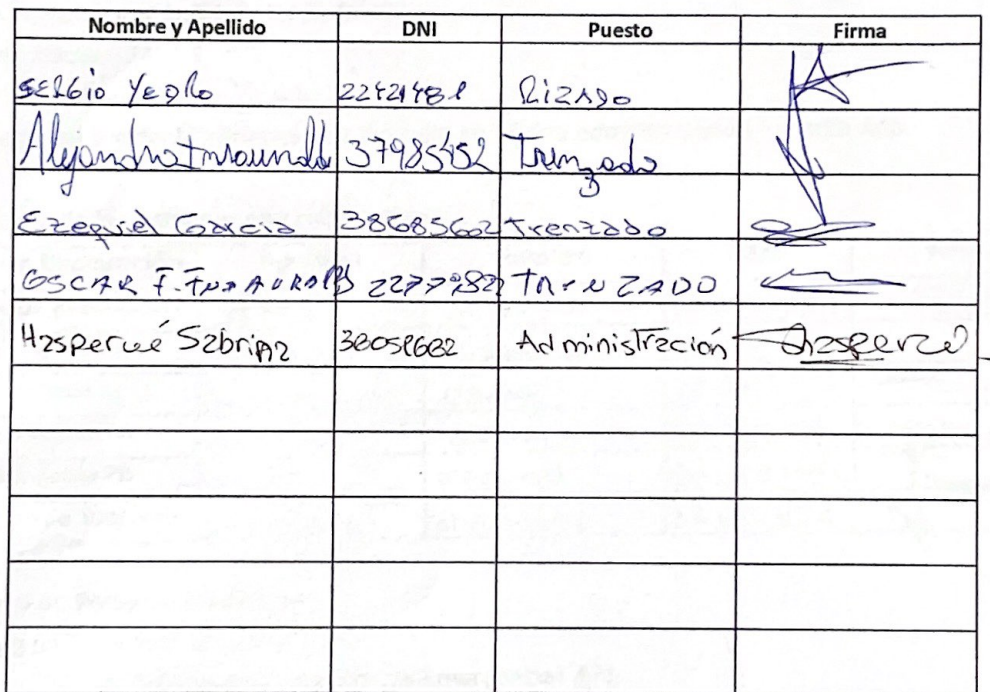 Nombre y Apellido DNI Puesto Firma
SERGIO YEDRO 22421481 RIZADO
Alejandro 37985452 Trenzado
Ezequiel Garcia 38685602 trenzado
OSCAR F. TRENZADO
Hasperué Sabrina 38058682 Administración Hasperué